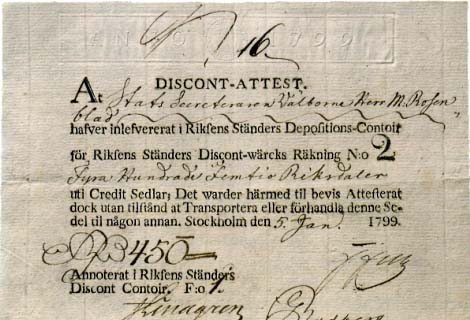 ANNO 1799
16.
DISCONT-ATTEST.
At Stats Secreteraren Välborne Herr M. Rosen
blad
hafver inlefvererat i Riksens Ständers Depositions-Contoir
för Riksens Ständers Discont-wärcks Räkning N:o 2
Fyra Hundrade Femtio Riksdaler
uti Credit Sedlar; Det warder härmed til bevis Attesterat
dock utan tilstånd at Transportera eller förhandla denne Se-
del til någon annan. Stockholm den 5. Jan. 1799.
RD 450
Annoterat i Riksens Ständers
Discont Contoir. F:o 1.
Lindgren